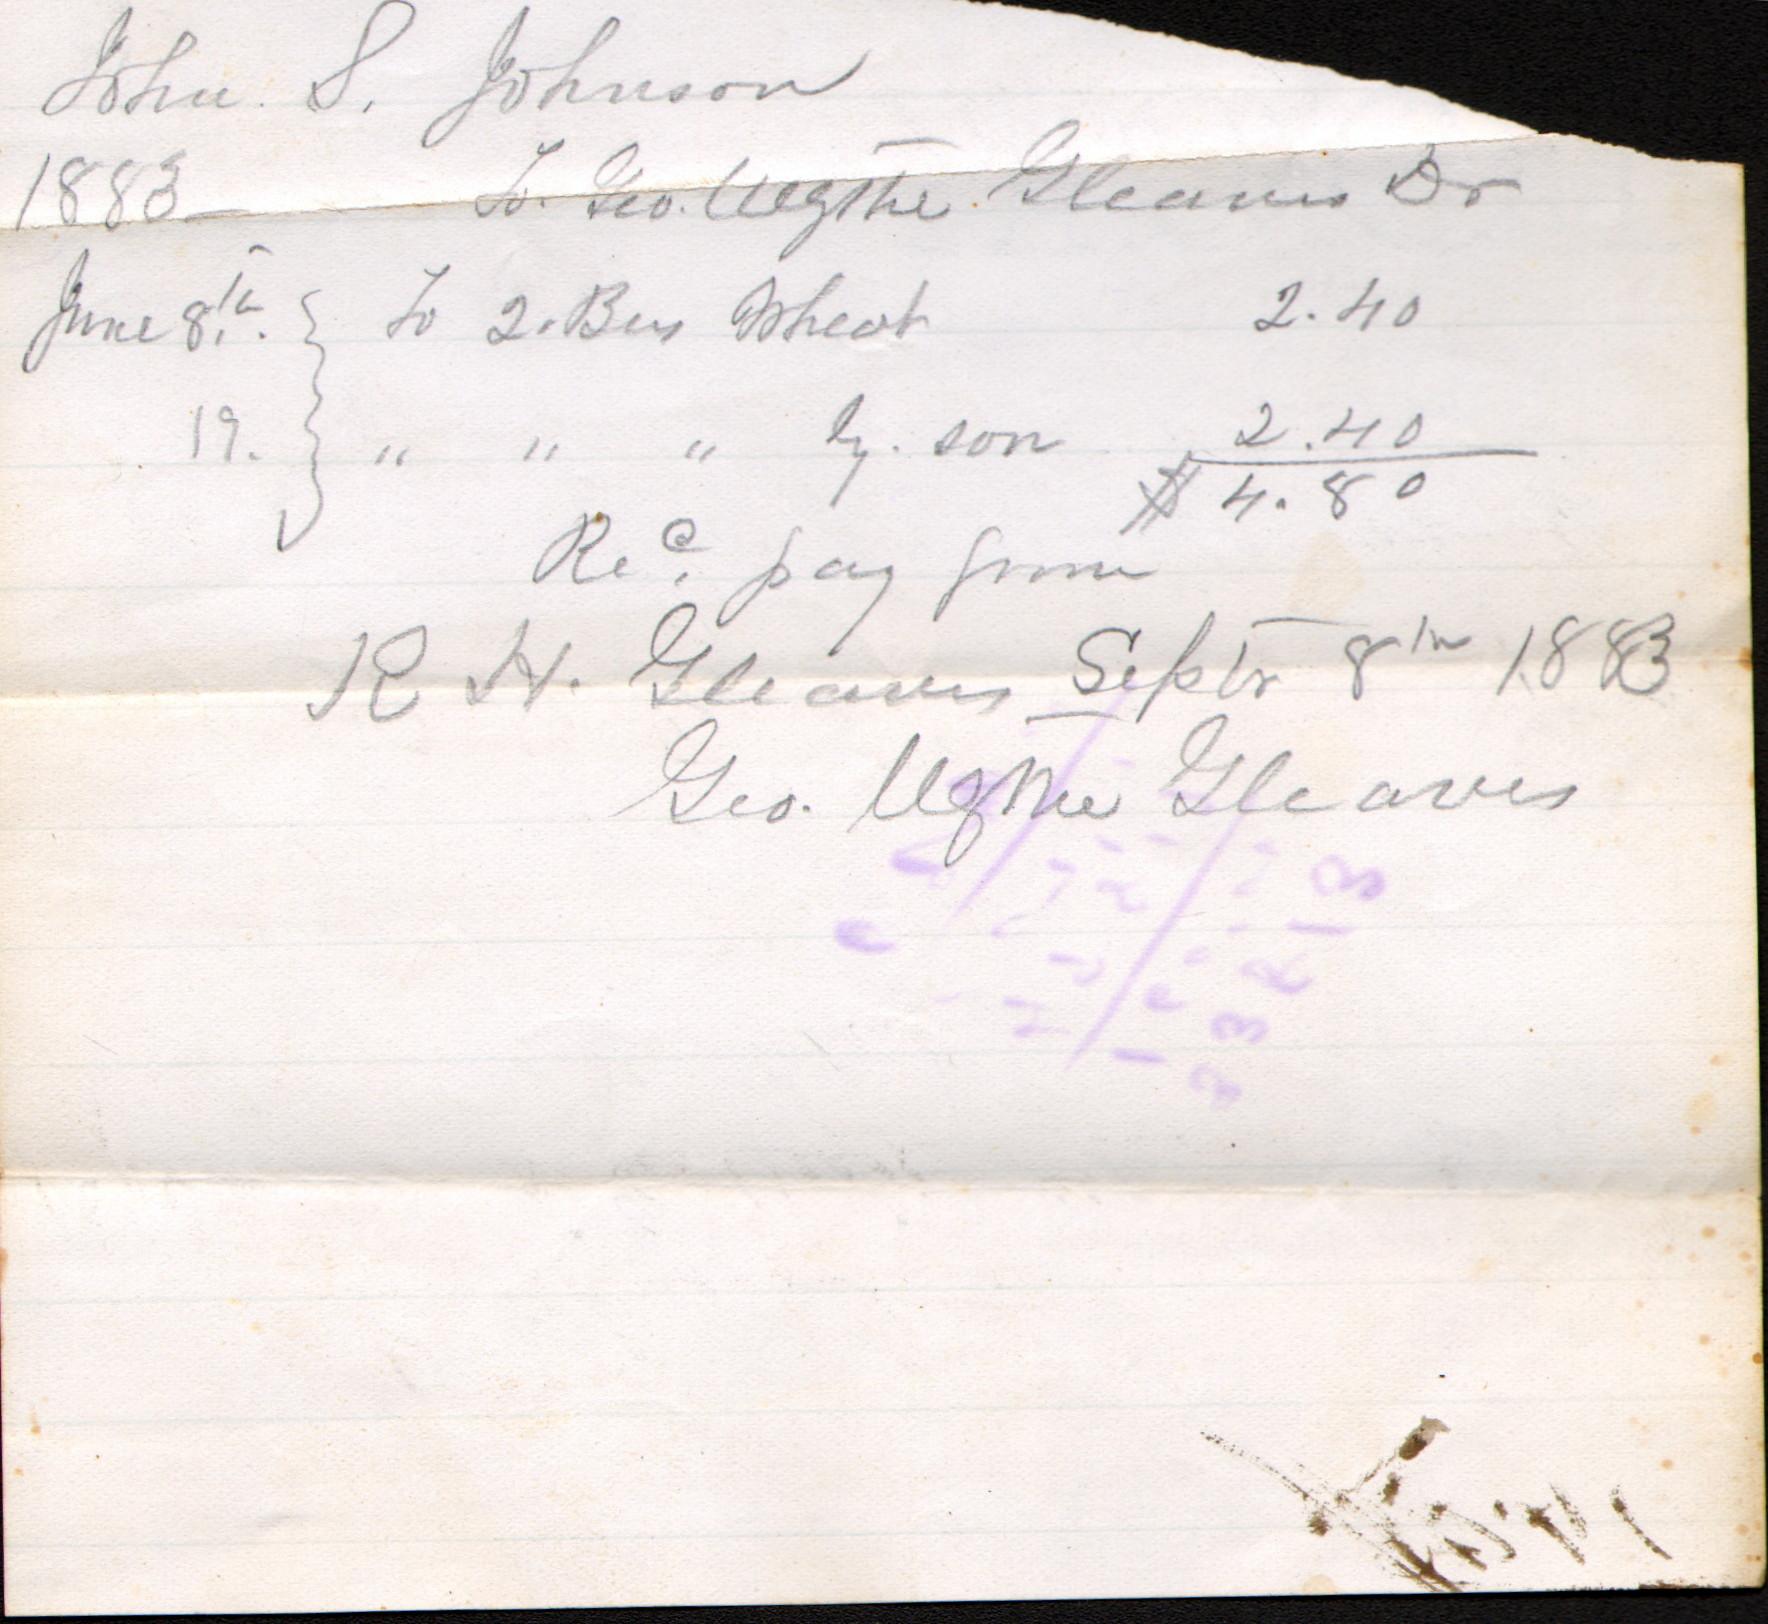 John S. Johnson
1883 To Geo. Wythe Gleaves Dr
June 8th. To 2. Bus Wheat 2.40
19. " " " by. son 2.40
$4.80
Rec. pay from
R H. Gleaves Septr 8th 1883
Geo. Wythe Gleaves